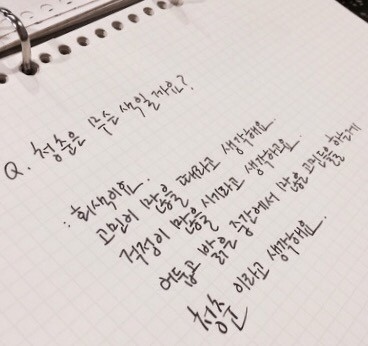 Q. 청춘은 무슨 색일까요?
:: 회색이요.
고민이 많을 때라고 생각해요.
걱정이 많을 시기라고 생각하고요.
어둡고 밝은 중간에서 많은 고민들을 하는게
청춘 이라고 생각해요.